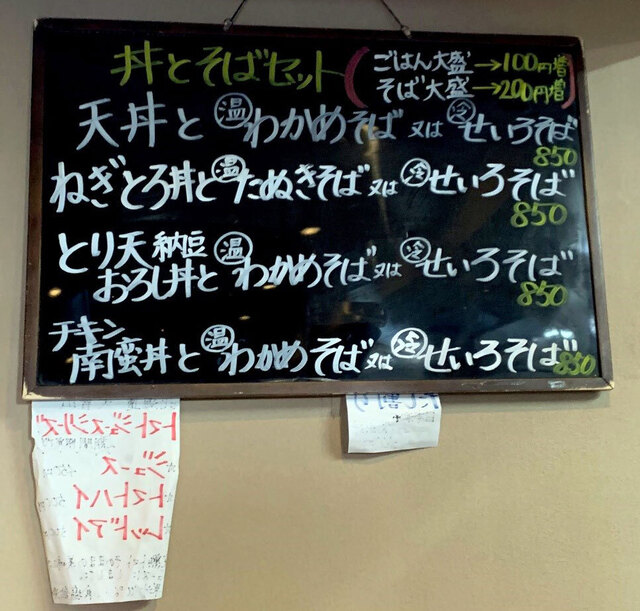 丼とそばセット
ごはん大盛→100円増
そば大盛→200円増
天丼と温わかめそば又は冷せいろそば
850
ねぎとろ丼と温たぬきそば又は冷せいろそば
850
とり天納豆
おろし丼と温わかめそば又は冷せいろそば
850
チキン
南蛮丼と温わかめそば又は冷せいろそば850
トマトジュースシリーズ
ジュース
トマトハイ
レッドアイ